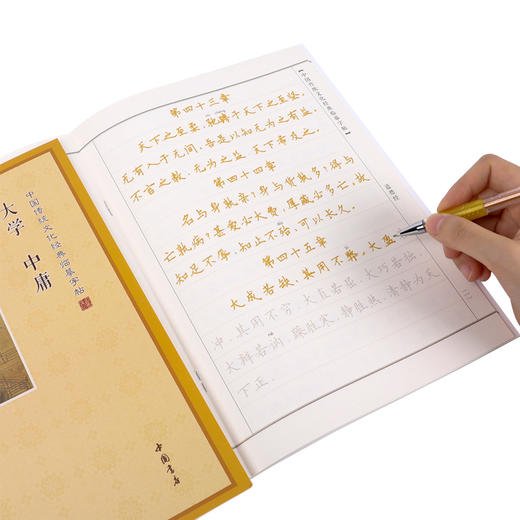 第四十三章
天下之至柔，驰骋于天下之至坚。
无有入于无间，吾是以知无为之有益。
不言之教，无为之益，天下希及之。
第四十四章
名与身孰亲？身与货孰多？得与
亡孰病？甚爱必大费，厚藏必多亡。故
知足不辱，知止不殆，可以长久。
第四十五章
大成若缺，其用不弊。大盈若
冲，其用不穷。大直若屈，大巧若拙，
大辩若讷。躁胜寒，静胜热，清静为天
下正。
【中国传统文化经典临摹字帖】
道德经
中国传统文化经典临摹字帖
大学 中庸
中国书店